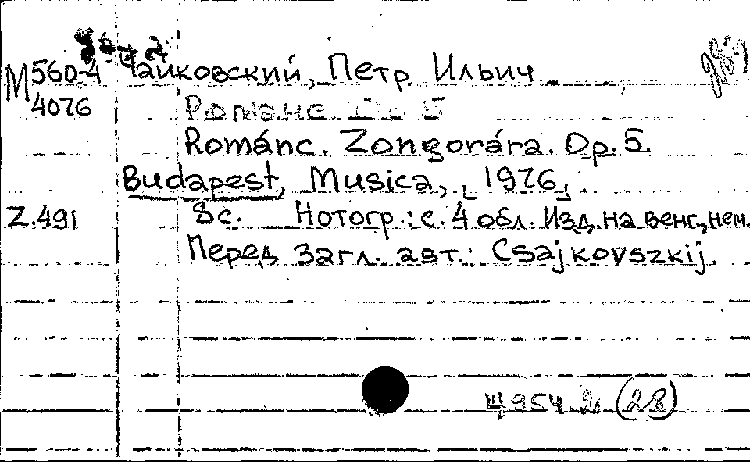 М 560-4 Чайковский, Петр Ильич
4076 Романс
Románc. Zongorára. Op. 5.
Budapest, Musica, [1976]
Z.491 8с. Нотогр.: с. 4 обл. Изд. на венг., нем.
Перед загл. авт.: Csajkovszkij.
Щ954.2 (28)